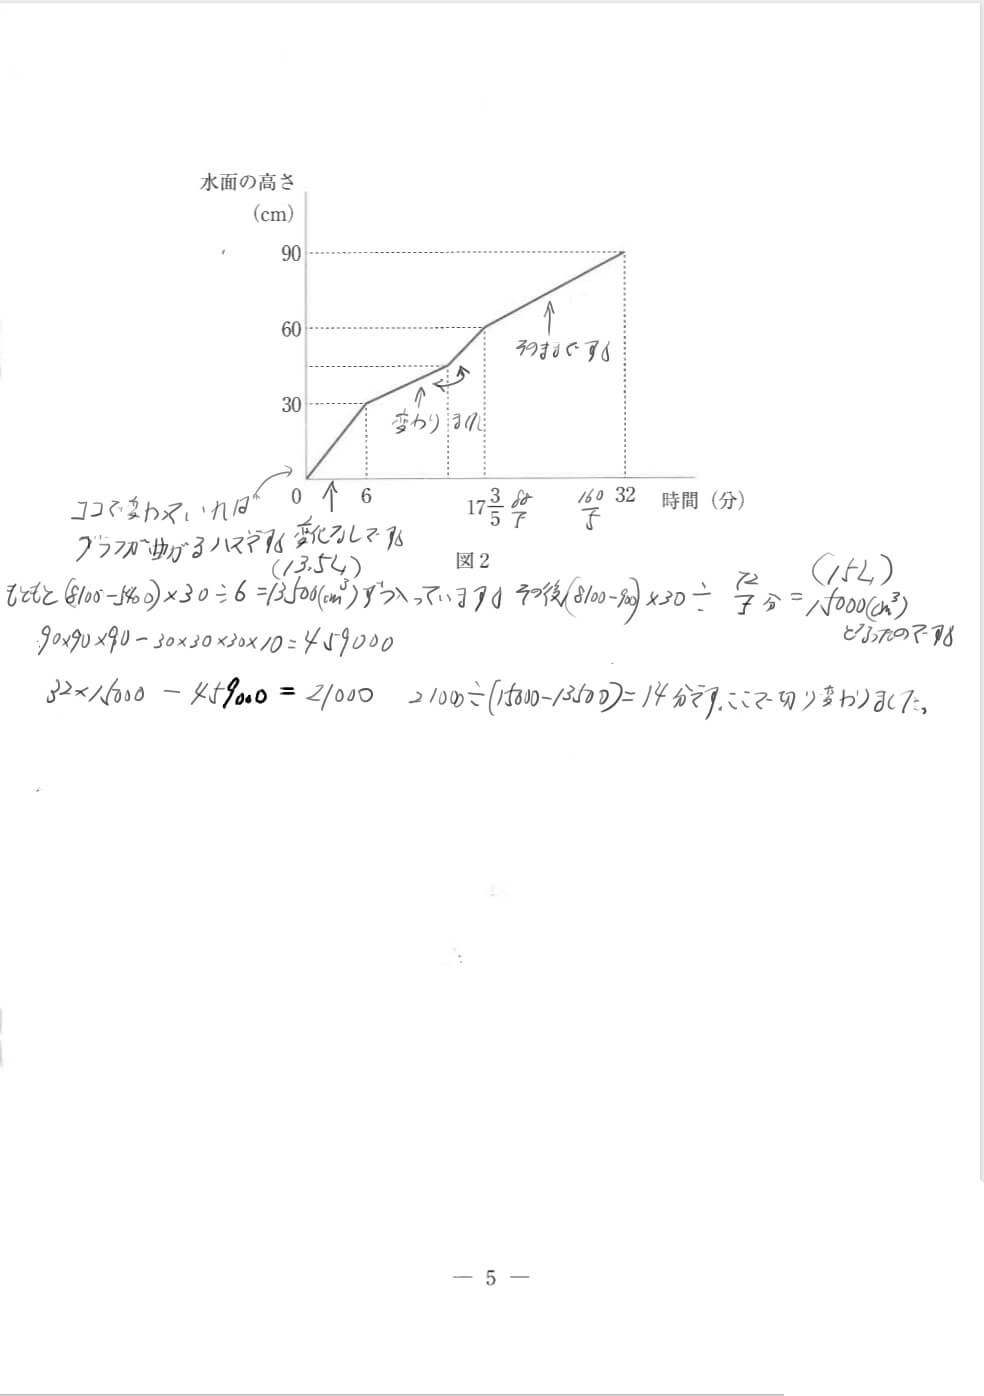 水面の高さ
(cm)
90
60
そのままです
30
変わりました
0 6 17 3/5 88/5 160/5 32 時間（分）
ココで変わっていれば
グラフが曲がるハズです 変化なしです
図2
(13.5L) (15L)
もともと(8100-5400)×30÷6=13500(cm³)ずつ入っています その後(8100-900)×30÷72/5分=15000(cm³)
90×90×90-30×30×30×10=459000
32×15000-459000=21000 21000÷(15000-13500)=14分です。ここで切り変わりました。
— 5 —